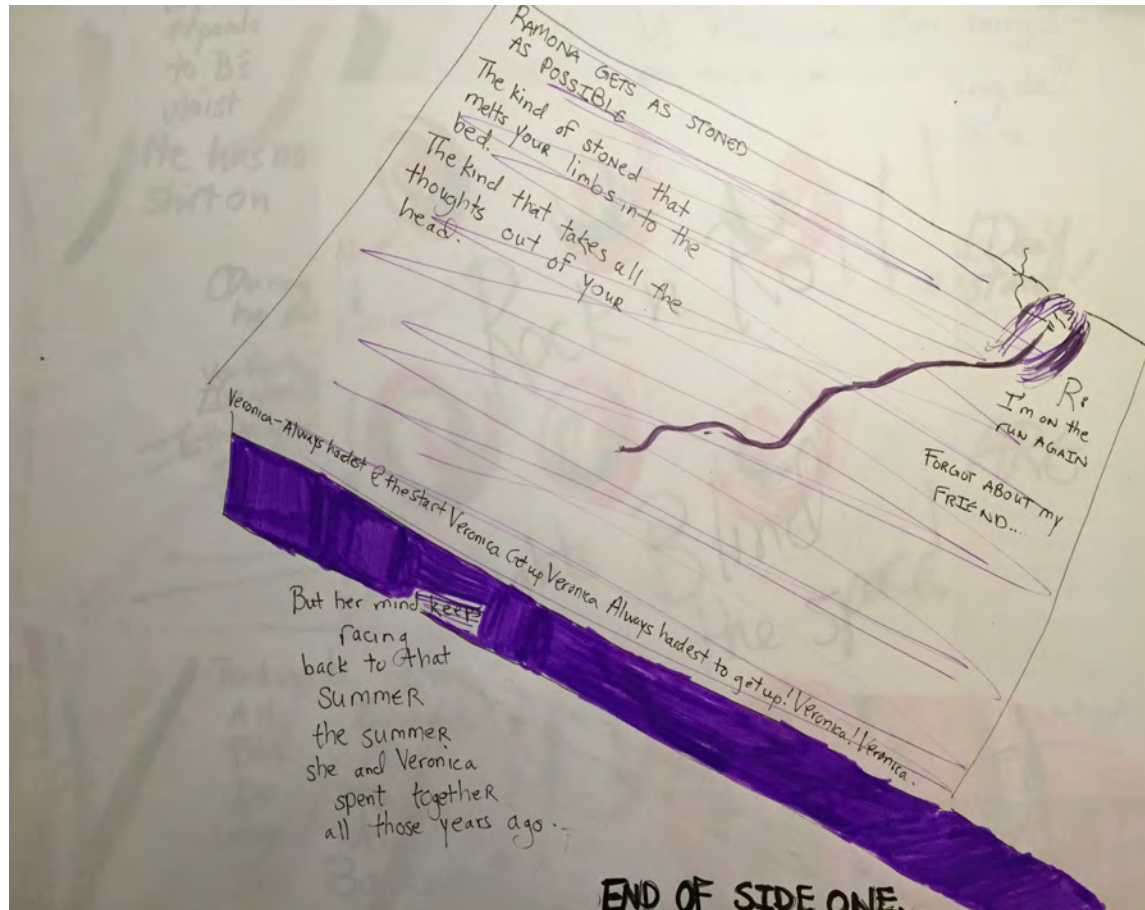 RAMONA GETS AS STONED
AS POSSIBLE
The kind of stoned that
melts your limbs into the
bed.
The kind that takes all the
thoughts out of your
head.
R:
I'm on the
RUN AGAIN
FORGOT ABOUT MY
FRIEND....
Veronica - Always hardest @ the start Veronica Get up Veronica Always hardest to get up! Veronica! Veronica.
But her mind keeps
racing
back to that
SUMMER
the summer
she and Veronica
spent together
all those years ago...
END OF SIDE ONE.
to BE
waist
He has no
shirt on
Rock
Blind